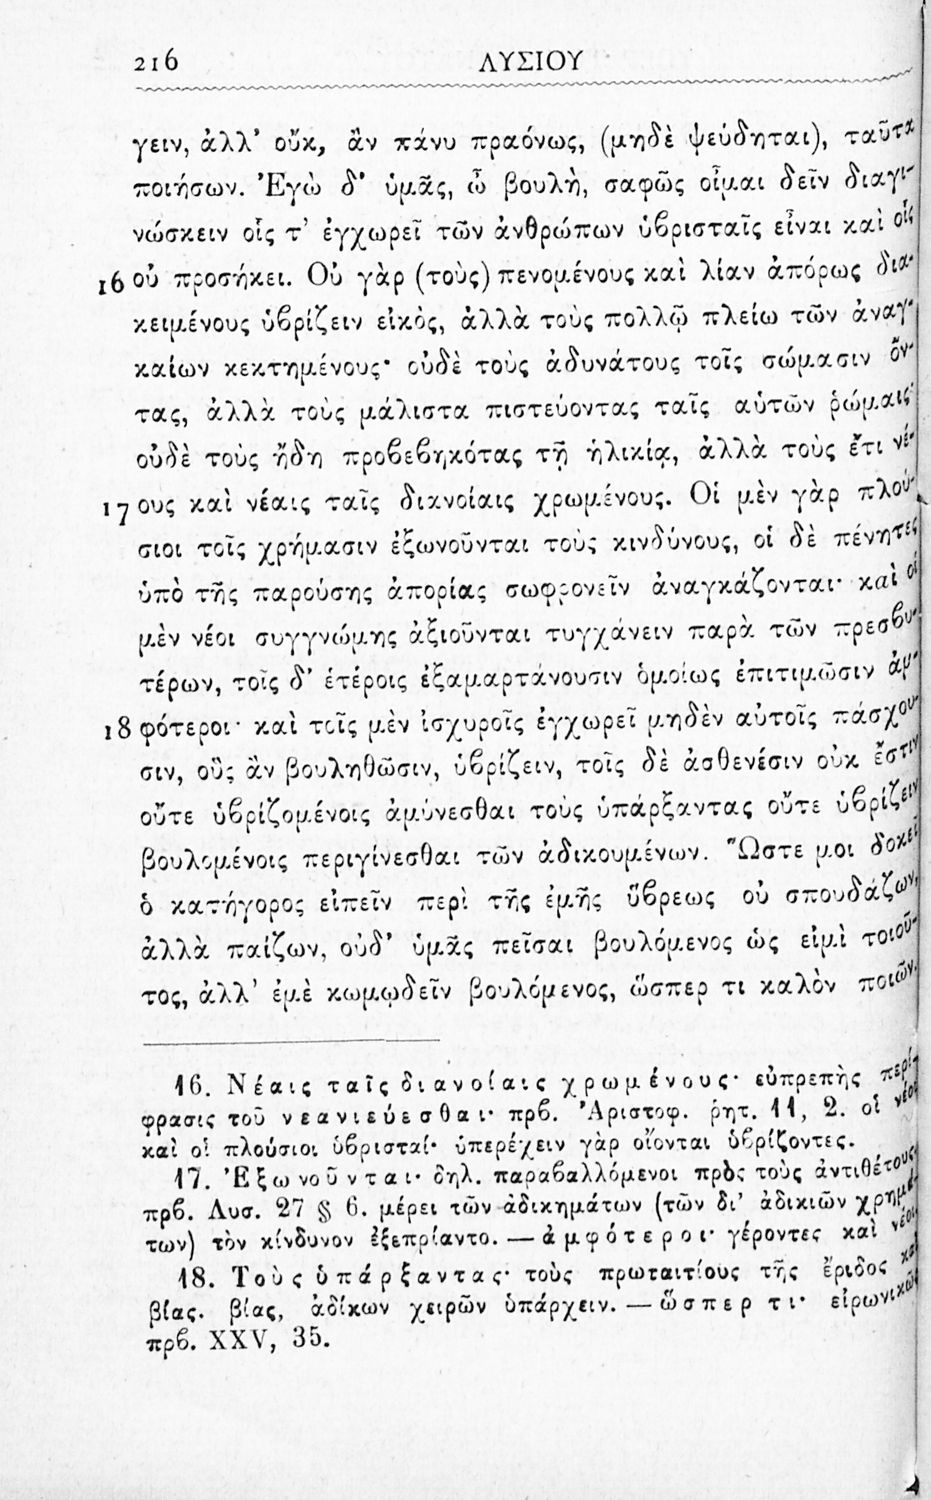 216 ΛΥΣΙΟΥ
γειν, ἀλλ' οὔκ, ἂν πάνυ πραόνως, (μηδὲ ψεύδηται), ταῦτα
ποιήσων. Ἐγὼ δ' ὑμᾶς, ὦ βουλὴ, σαφῶς οἶμαι δεῖν διαγι-
νώσκειν οἷς τ' ἐγχωρεῖ τῶν ἀνθρώπων ὑβρισταῖς εἶναι καὶ οἷς
16 οὐ προσήκει. Οὐ γὰρ (τοὺς) πενομένους καὶ λίαν ἀπόρως δια-
κειμένους ὑβρίζειν εἰκὸς, ἀλλὰ τοὺς πολλῷ πλείω τῶν ἀναγ-
καίων κεκτημένους· οὐδὲ τοὺς ἀδυνάτους τοῖς σώμασιν ὄν-
τας, ἀλλὰ τοὺς μάλιστα πιστεύοντας ταῖς αὑτῶν ῥώμαις·
οὐδὲ τοὺς ἤδη προβεβηκότας τῇ ἡλικίᾳ, ἀλλὰ τοὺς ἔτι νέ-
17 ους καὶ νέαις ταῖς διανοίαις χρωμένους. Οἱ μὲν γὰρ πλού-
σιοι τοῖς χρήμασιν ἐξωνοῦνται τοὺς κινδύνους, οἱ δὲ πένητες
ὑπὸ τῆς παρούσης ἀπορίας σωφρονεῖν ἀναγκάζονται· καὶ οἱ
μὲν νέοι συγγνώμης ἀξιοῦνται τυγχάνειν παρὰ τῶν πρεσβυ-
τέρων, τοῖς δ' ἑτέροις ἐξαμαρτάνουσιν ὁμοίως ἐπιτιμῶσιν ἀμ-
18 φότεροι· καὶ τοῖς μὲν ἰσχυροῖς ἐγχωρεῖ μηδὲν αὐτοῖς πάσχου-
σιν, οὓς ἂν βουληθῶσιν, ὑβρίζειν, τοῖς δὲ ἀσθενέσιν οὐκ ἔστιν
οὔτε ὑβριζομένοις ἀμύνεσθαι τοὺς ὑπάρξαντας οὔτε ὑβρίζειν
βουλομένοις περιγίνεσθαι τῶν ἀδικουμένων. Ὥστε μοι δοκεῖ
ὁ κατήγορος εἰπεῖν περὶ τῆς ἐμῆς ὕβρεως οὐ σπουδάζων,
ἀλλὰ παίζων, οὐδ' ὑμᾶς πεῖσαι βουλόμενος ὡς εἰμὶ τοιοῦ-
τος, ἀλλ' ἐμὲ κωμῳδεῖν βουλόμενος, ὥσπερ τι καλὸν ποιῶν.
16. Νέαις ταῖς διανοίαις χρωμένους· εὐπρεπὴς περί-
φρασις τοῦ νεανιεύεσθαι· πρβ. Ἀριστοφ. ῥητ. 11, 2. οἱ νέοι
καὶ οἱ πλούσιοι ὑβρισταί· ὑπερέχειν γὰρ οἴονται ὑβρίζοντες.
17. Ἐξωνοῦνται· δηλ. παραβαλλόμενοι πρὸς τοὺς ἀντιθέτους
πρβ. Λυσ. 27 § 6. μέρει τῶν ἀδικημάτων (τῶν δι' ἀδικιῶν χρημά-
των) τὸν κίνδυνον ἐξεπρίαντο. — ἀμφότεροι· γέροντες καὶ νέοι.
18. Τοὺς ὑπάρξαντας· τοὺς πρωταιτίους τῆς ἔριδος καὶ
βίας. βίας, ἀδίκων χειρῶν ὑπάρχειν. — ὥσπερ τι· εἰρωνικῶς
πρβ. XXV, 35.